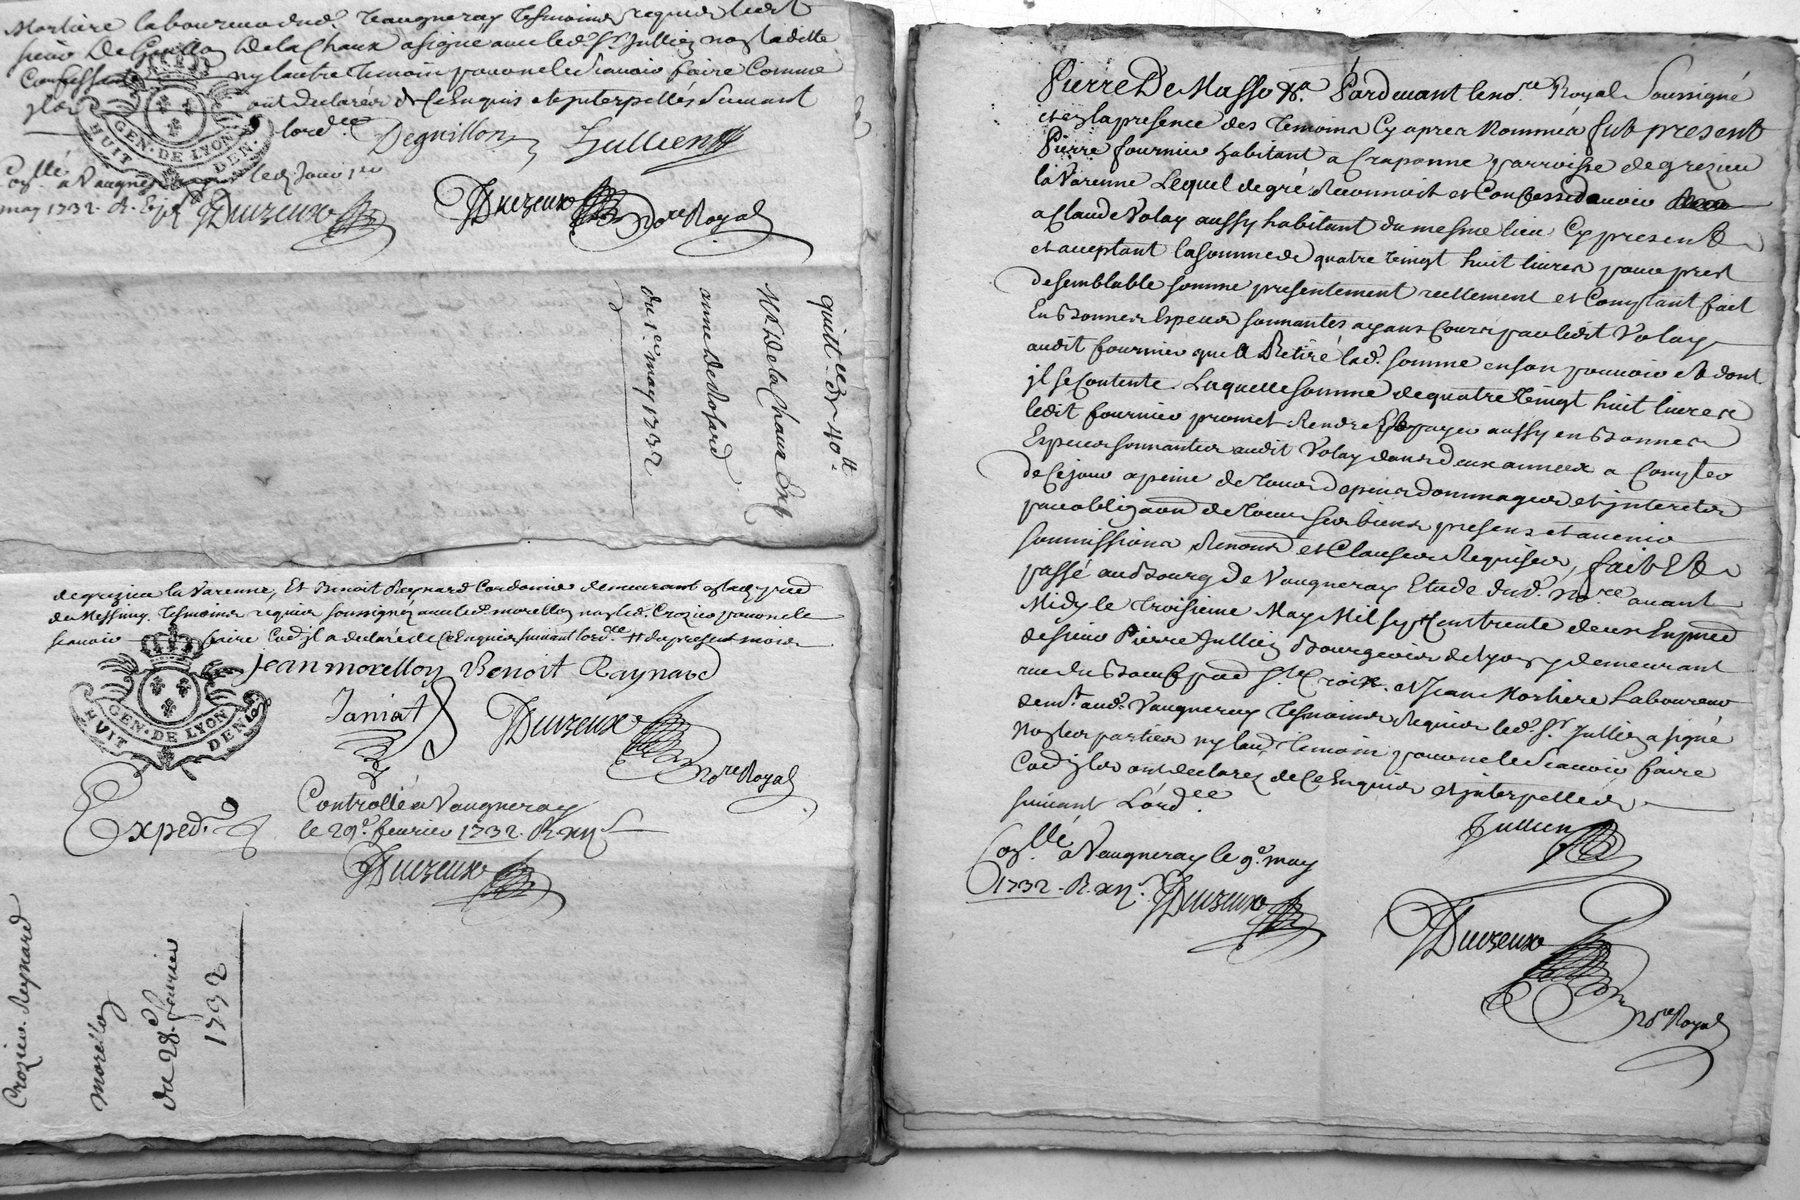 Mortiere laboureur dud. Vaugneray Tesmoins requis ledit
sieur De Guillon De la Chaux a signé avec led. Sr. Jullien non laditte
Confessante ny lautre Temoin pour ne le scavoir faire Comme
ont declarés de Ce Enquis et Interpellés Suivant
lord.ce
Deguillon
Jullien
GEN. DE LYON
HUIT DEN.
a Vaugneray
may 1732. R.
Duvzeux
Duvzeux
No.re Royal
quitt.ce 40.tt
Mr De la Chaux
anne De
du 1.er may 1732
de grezieu la Varenne, Et Benoit Reynard Cordonnier demeurant
de Messimy Tesmoins requis soussignez avec led. morellon non led. Crozier pour ne le
scavoir faire Cod. il a declaré de Ce Enquis suivant lord.ce
Jean morellon Benoit Raynard
Janiat
Duvzeux
No.re Royal
GEN. DE LYON
HUIT DEN.
Exped.
Controllé a Vaugneray
le 29.e fevrier 1732. R.
Duvzeux
Crozier. Reynard
morellon
du 28.e fevrier
1732
Pierre De Masso &a. Pardevant le no.re Royal Soussigné
et en la presence des Temoins Cy apres Nommés fut present
Pierre fournier habitant a Craponne parroisse de grezieu
la Varenne Lequel de gré Reconnoit et Confesse devoir
a Claude Volay aussy habitant du mesme lieu Cy present &
et acceptant la somme de quatre Vingt huit livres pour prest
de semblable somme presentement reellement et Comptant fait
En Bonnes Especes sonnantes ayans Cours par ledit Volay
audit fournier qui la Retiré lad. somme en son pouvoir et dont
jl se Contente Laquelle somme de quatre Vingt huit livres
ledit fournier promet Rendre et payer aussy en Bonnes
Especes sonnantes audit Volay dans deux années a Compter
de Ce jour a peine de Tous depens dommages et jnterets
par obligaon de Tous ses biens presens et avenir
soumissions Renonons et Clauses Requises, fait &
passé au Bourg de Vaugneray Etude dud. no.re avant
Midy le Troisieme May Mil sept Cent trente deux En pnce
de sieur Pierre Jullien Bourgeois de Lyon y demeurant
rue du Boeuf psse Ste Croix. et Jean Mortiere Laboureur
demt. aud. Vaugneray Tesmoins Requis led. Sr Jullien a signé
Non les parties ny laud. Temoin pour ne le scavoir faire
Cod. jls ont declarez de Ce Enquis et jnterpellés
suivant Lord.ce
Jullien
a Vaugneray le 9.e may
1732. R.
Duvzeux
Duvzeux
No.re Royal